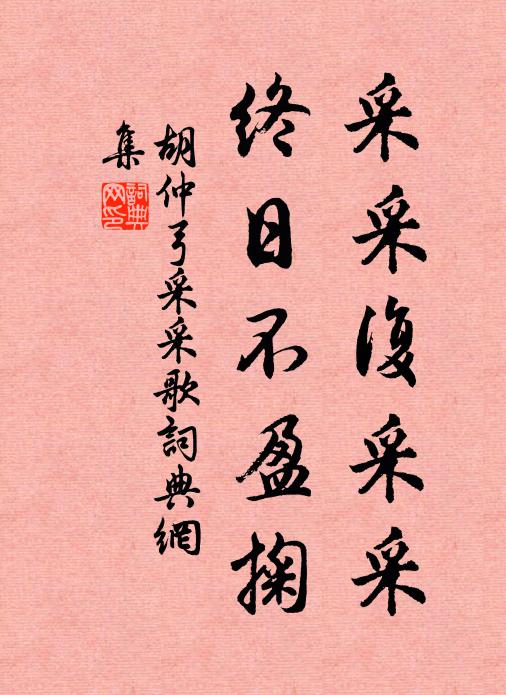 采采復采采
終日不盈掬
胡仲弓采采歌詞典網
集
詞典
网印